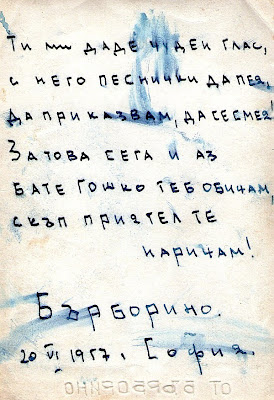 Ти ми даде чудеи глас,
с него песнички да пея,
да приказвам, да се смея
За това сега и аз
бате Гошко теб обичам,
скъп приятел те
наричам!
Бърборино.
20 VI 1957 г. София.
ОТ БЪРБОРИНО